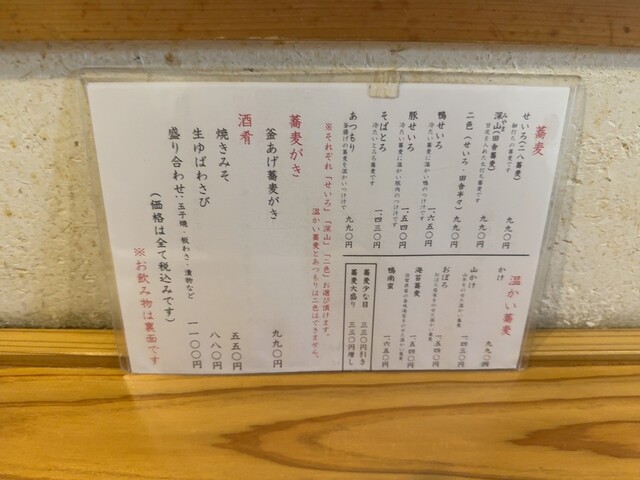 蕎麦
せいろ(二八蕎麦)
細打ちの蕎麦です
九九〇円
深山(田舎蕎麦)
九九〇円
二色(せいろ・田舎半々)
九九〇円
鴨せいろ
冷たい蕎麦に温かい鴨のつけ汁です
一、六五〇円
豚せいろ
冷たい蕎麦に温かい豚肉のつけ汁です
一、五四〇円
そばとろ
冷たいとろろ蕎麦です
一、四三〇円
あつもり
釜揚げの蕎麦を温かいつけ汁で
九九〇円
温かい蕎麦
かけ
九九〇円
山かけ
一、四三〇円
おぼろ
一、五四〇円
海苔蕎麦
一、五四〇円
鴨南蛮
一、六五〇円
蕎麦少な目 三三〇円引き
蕎麦大盛り 三三〇円増し
※それぞれ「せいろ」「深山」「二色」お選び頂けます。
温かい蕎麦とあつもりは二色はできません。
蕎麦がき
釜あげ蕎麦がき
九九〇円
酒肴
焼きみそ
五五〇円
生ゆばわさび
八八〇円
盛り合わせ:玉子焼・板わさ・漬物など
一一〇〇円
(価格は全て税込みです)
※お飲み物は裏面です